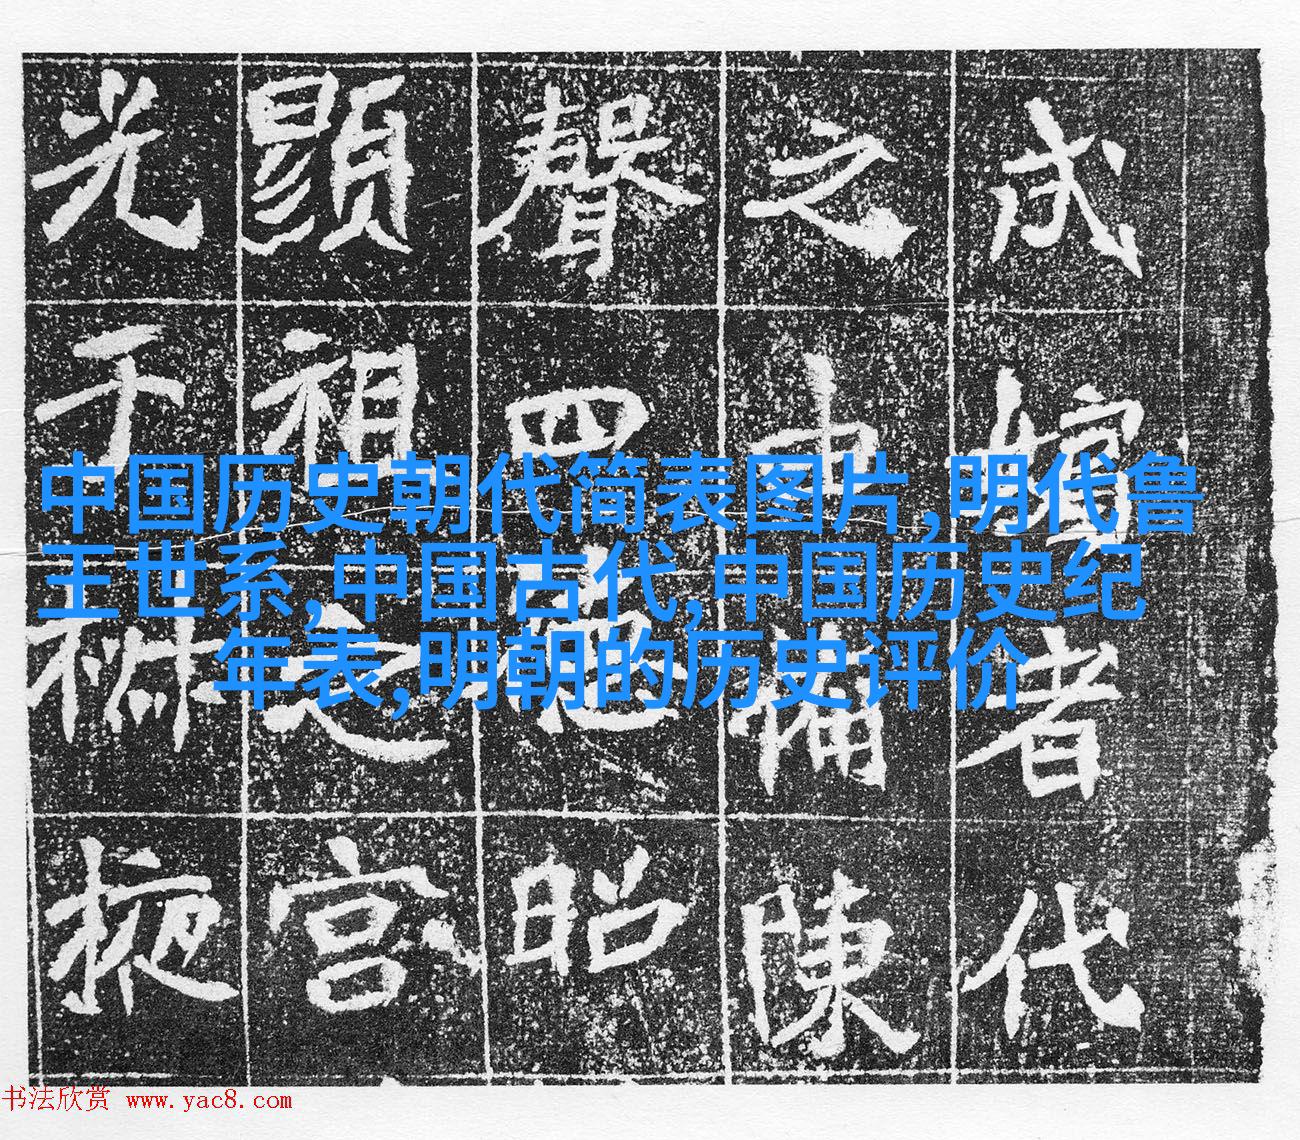 者代
之申陳
聲四昭
顯祖之宮
光于掖
中国历史朝代简表图片,明代鲁
王世系,中国古代,中国历史纪
年表,明朝的历史评价
书法欣赏 www.yac8.com